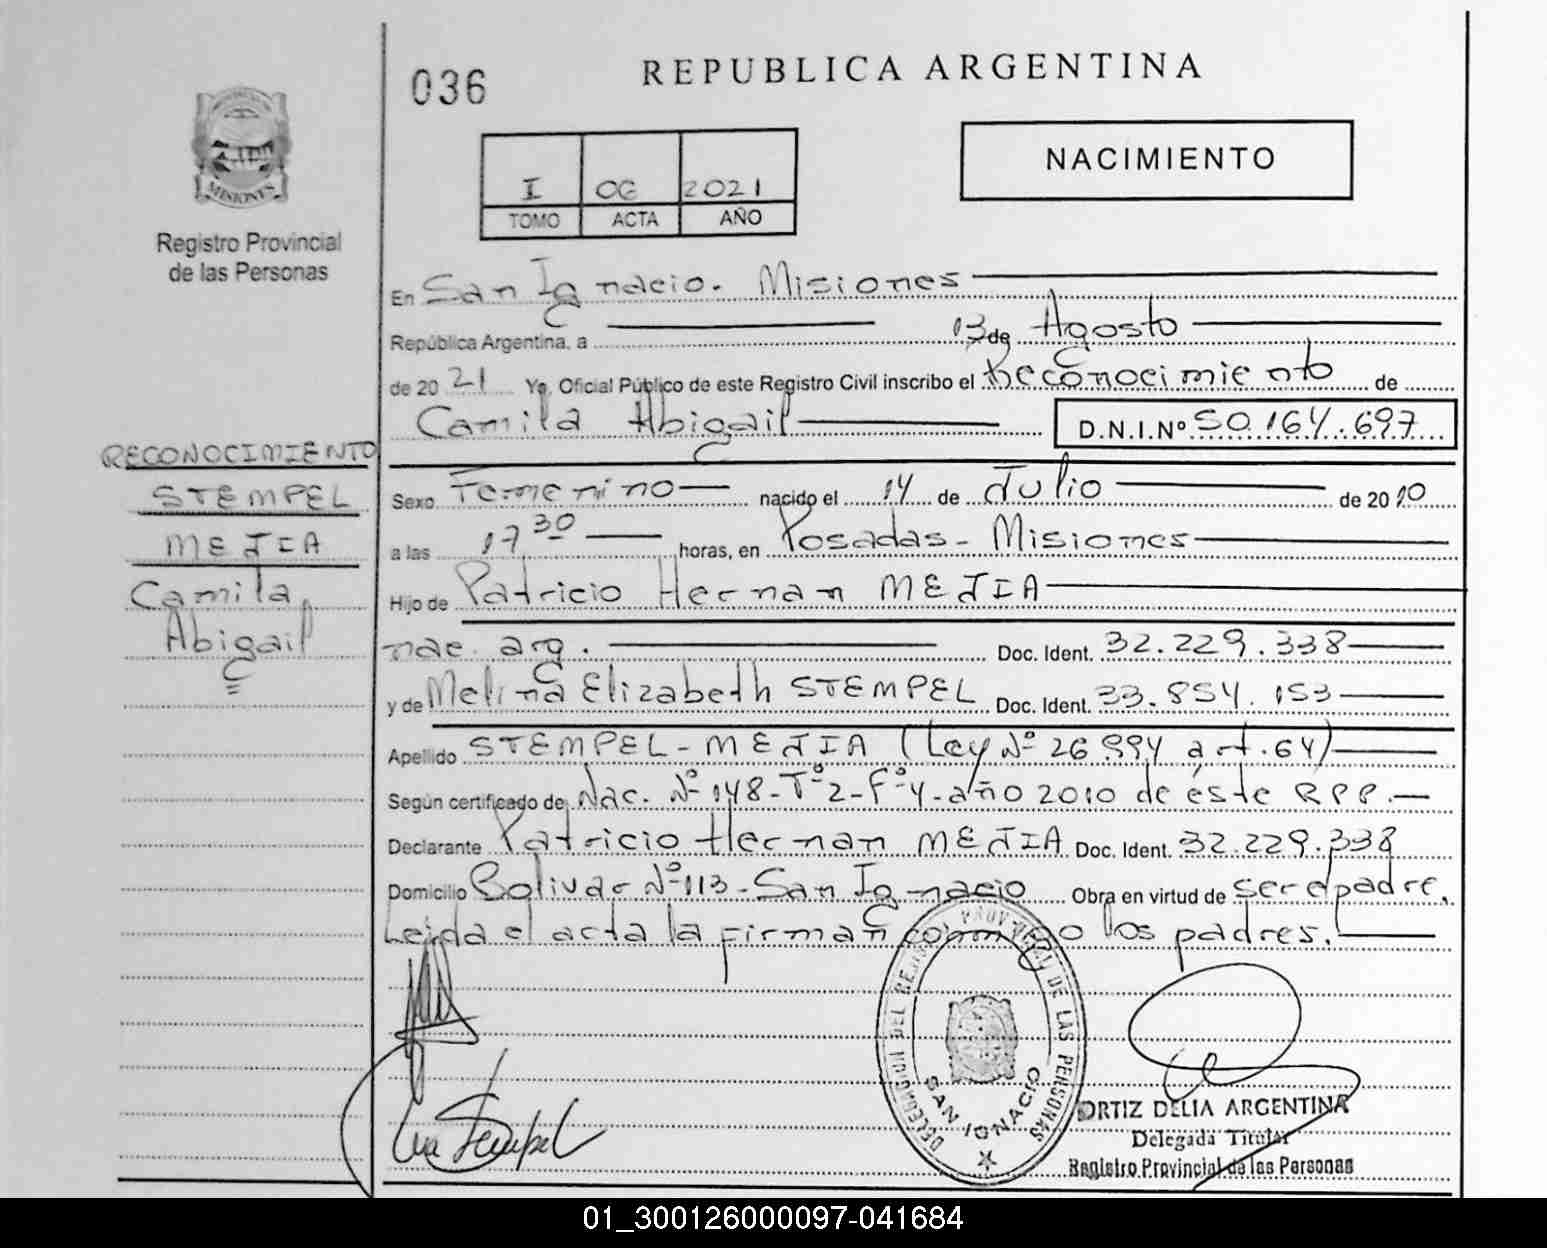 036
REPUBLICA ARGENTINA
NACIMIENTO
I 06 2021
TOMO ACTA AÑO
MISIONES
Registro Provincial
de las Personas
En San Ignacio. Misiones
República Argentina, a 13 de Agosto
de 20 21 Yo, Oficial Público de este Registro Civil inscribo el Reconocimiento de
Camila Abigail D.N.I.Nº 50.164.697
RECONOCIMIENTO
STEMPEL
MEJIA
Camila
Abigail
Sexo Femenino nacido el 14 de Julio de 20 10
a las 17 30 horas, en Posadas - Misiones
Hijo de Patricio Hernan MEJIA
nac. arg. Doc. Ident. 32.229.338
y de Melina Elizabeth STEMPEL Doc. Ident. 33.854.153
Apellido STEMPEL - MEJIA (Ley Nº 26.994 art. 64)
Según certificado de Nac. Nº 148 - Tº 2 - Fº 4 - año 2010 de éste RPP.
Declarante Patricio Hernan MEJIA Doc. Ident. 32.229.338
Domicilio Bolivar Nº 113 - San Ignacio Obra en virtud de ser el padre.
Leida el acta la firman conmigo los padres.
DELEGACION DEL REGISTRO PROVINCIAL DE LAS PERSONAS
SAN IGNACIO
Stempel
ORTIZ DELIA ARGENTINA
Delegada Titular
Registro Provincial de las Personas
01_300126000097-041684